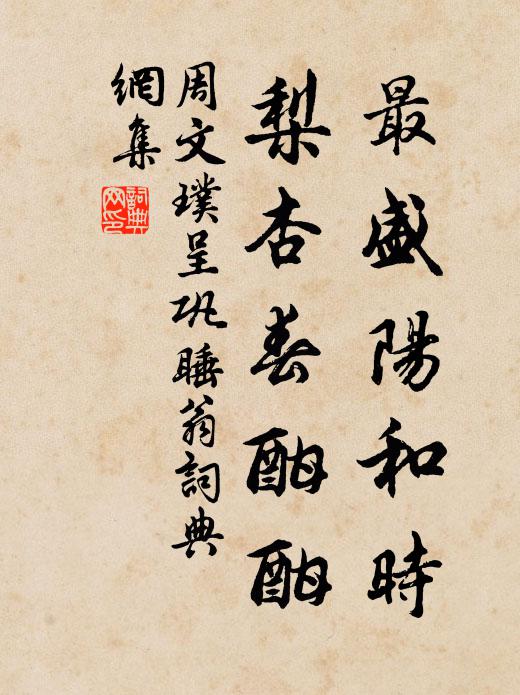 最盛陽和時
梨杏春酣酣
周文璞呈巩睡翁詞典
網集
詞典網印